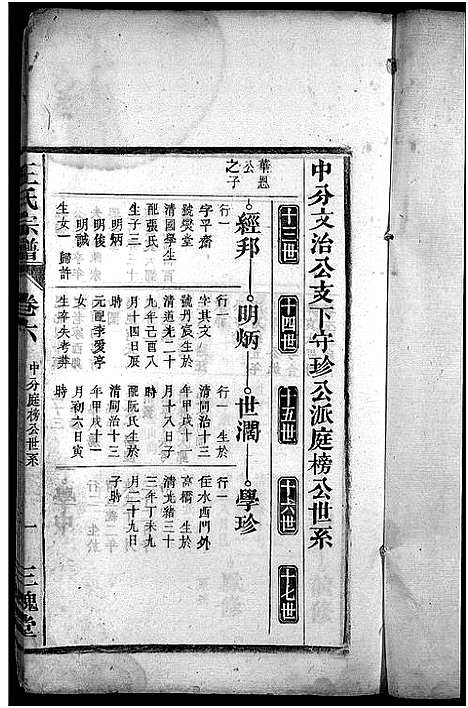 中分文治公支下守珍公派庭榜公世系
十三世
十四世
十五世
十六世
十七世
華恩
公
之子
經邦
明炳
世濶
學珍
行一
字平齋
號燮堂
清國學生
配張氏
生子三
明炳
明俊
明誠
生女一
歸許
行一
字其文
號丹宸生於
清道光二十
九年己酉八
月十四日辰
時
元配李爱亭
女
生卒失考葬
行一 生於
清同治十三
年甲戌十一
月十八日子
時
配阮氏生於
清同治十三
年甲戌十一
月初六日寅
時
行一
住水西門外
高橋 生於
清光緒三十
三年丁未九
月二十九日
子時
王氏宗譜
卷六
中分庭榜公世系
一
三槐堂